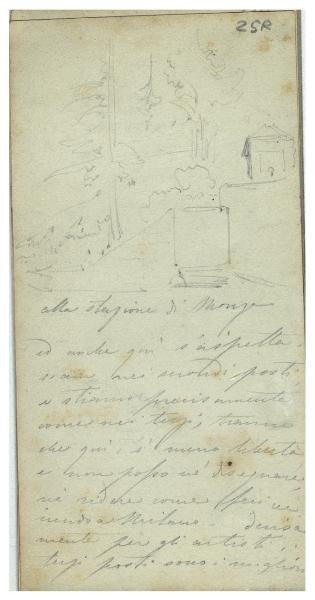 25R
alla stazione di Monza
ed anche qui s'aspetta.
siam nei secondi posti,
e stiamo precisamente
come nei terzi, tranne
che qui, s'è meno libertà
e non posso nè disegnare,
nè ridere come feci ve
nendo a Milano. decisa
mente per gli artisti, i
terzi posti sono i migliori